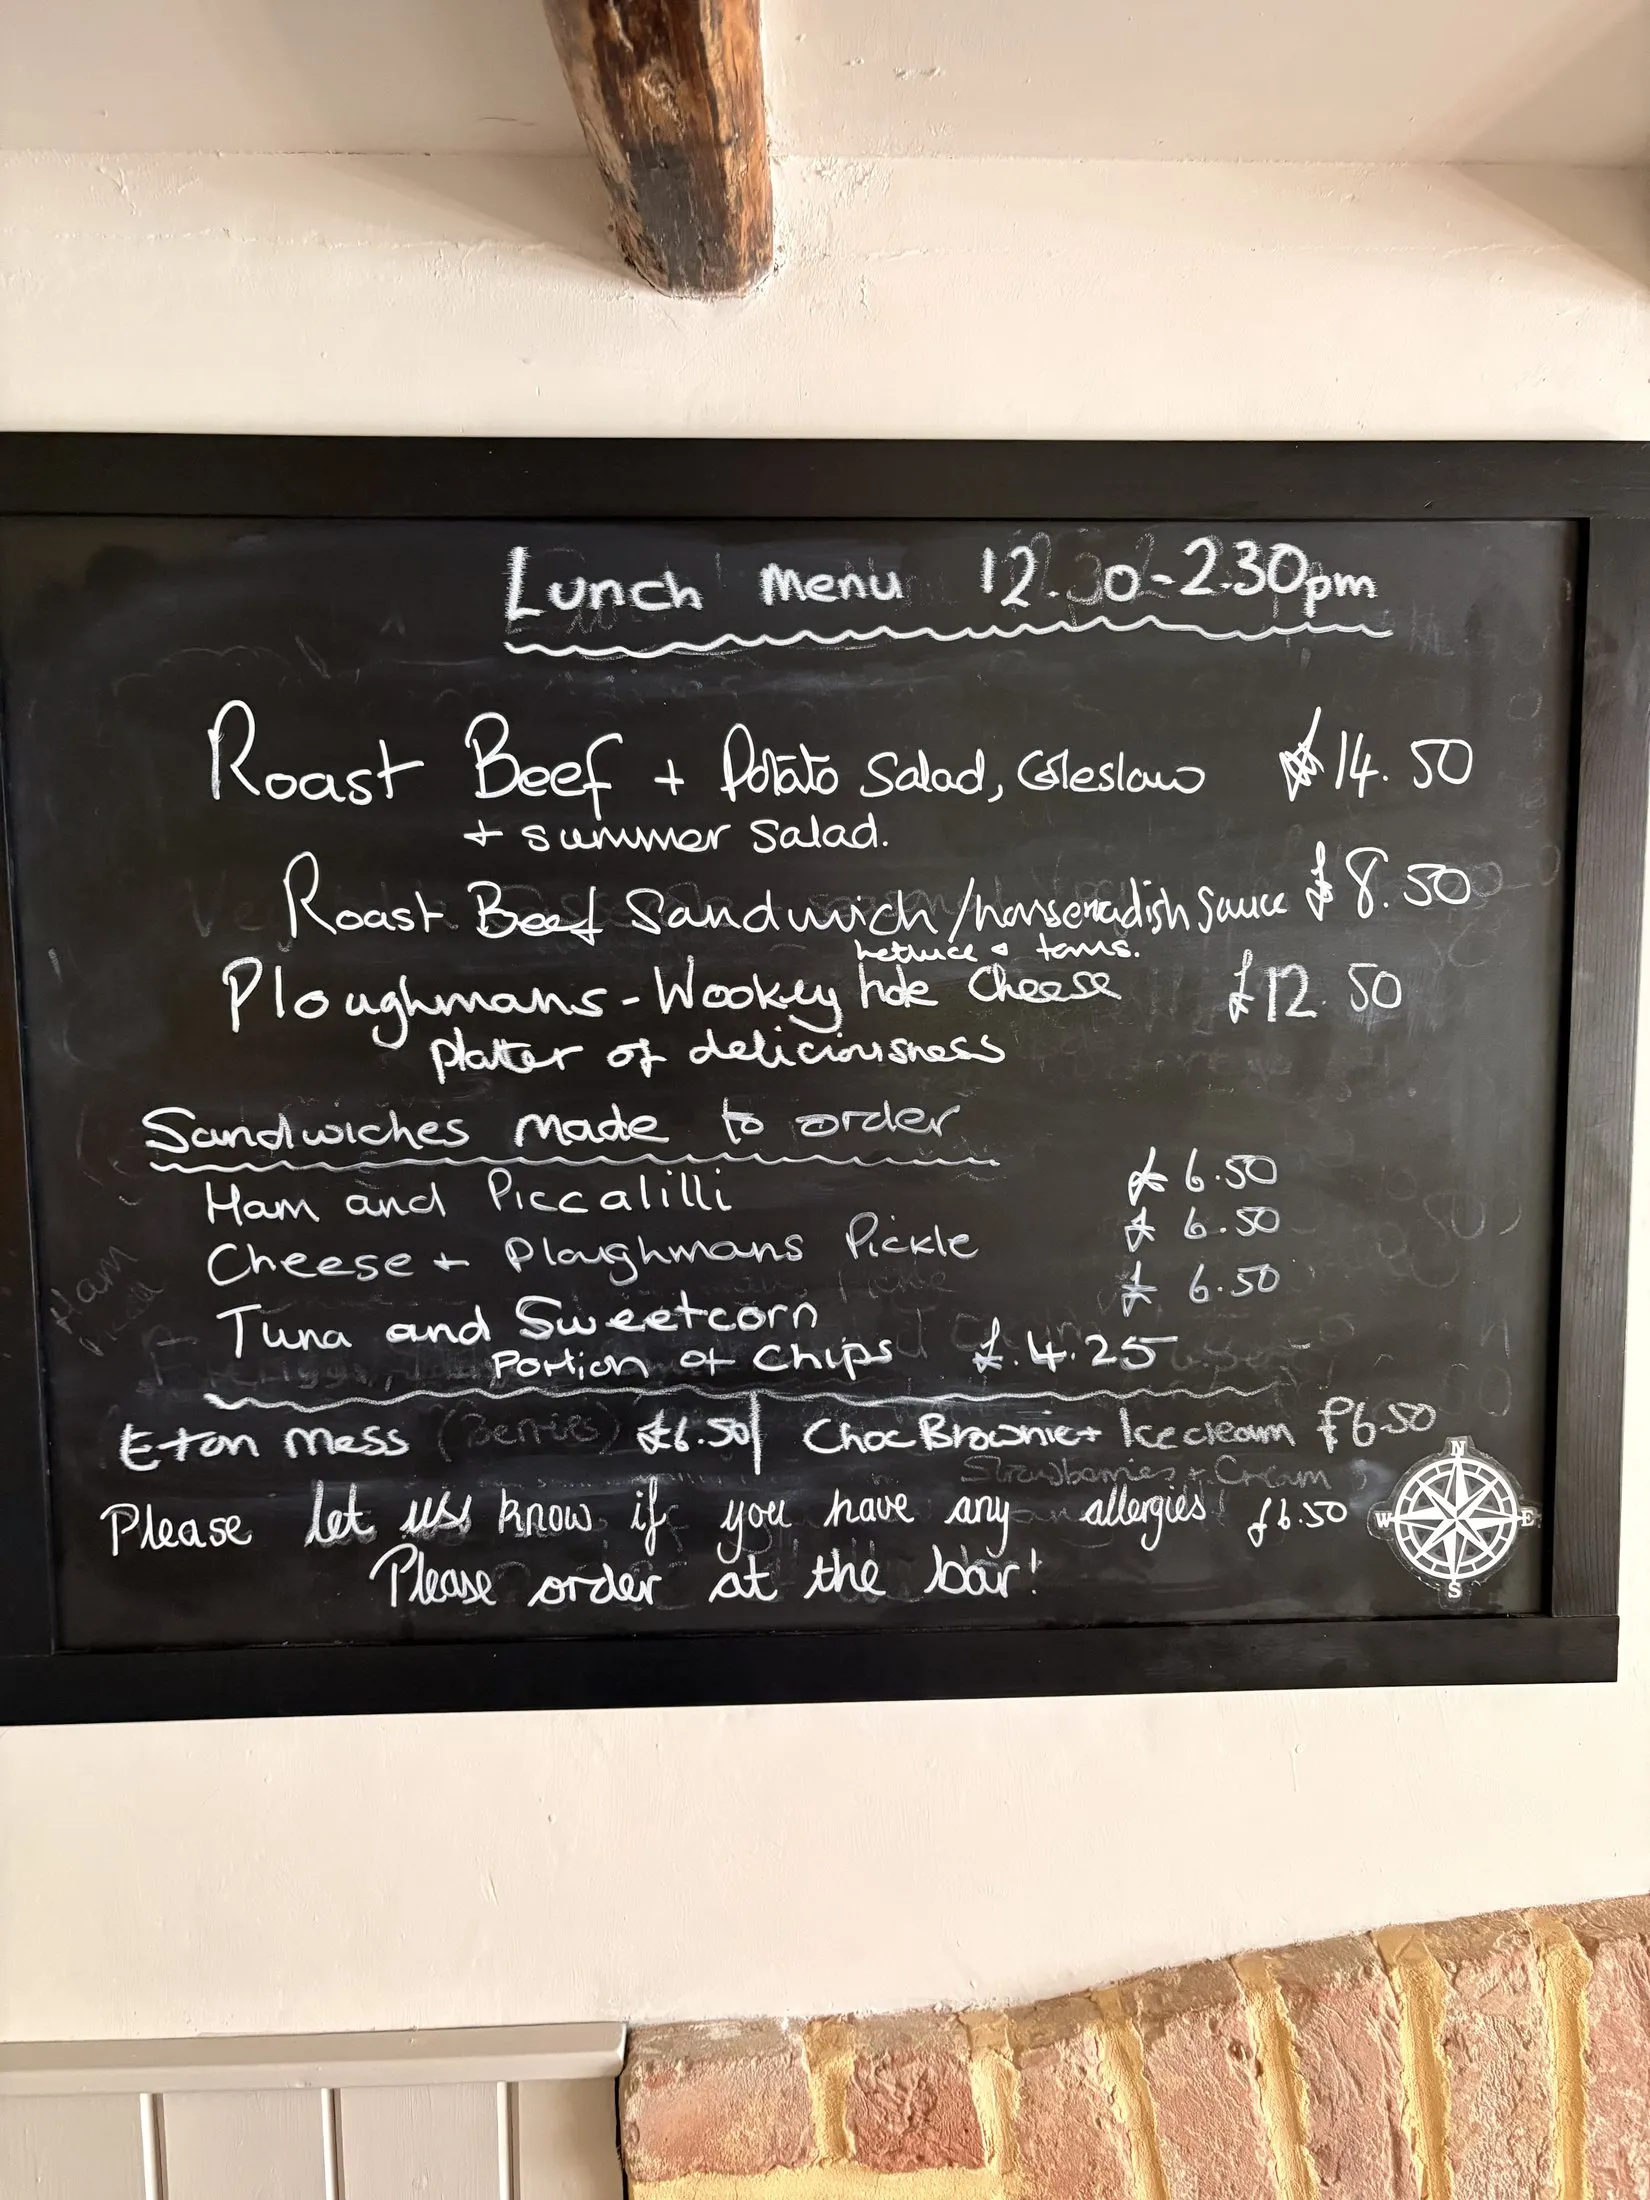 Lunch Menu 12.30-2.30pm
Roast Beef + Potato Salad, Coleslaw £14.50
+ summer salad.
Roast Beef Sandwich/horseradish sauce £8.50
lettuce + toms.
Ploughmans - Wookey hole Cheese £12.50
platter of deliciousness
Sandwiches made to order
Ham and Piccalilli £6.50
Cheese + Ploughmans Pickle £6.50
Tuna and Sweetcorn £6.50
Portion of Chips £.4.25
Eton Mess (Berries) £6.50 | Choc Brownie + Ice cream £6.50
Strawberries + Cream
Please let us know if you have any allergies £6.50
Please order at the bar!
N
W E
S